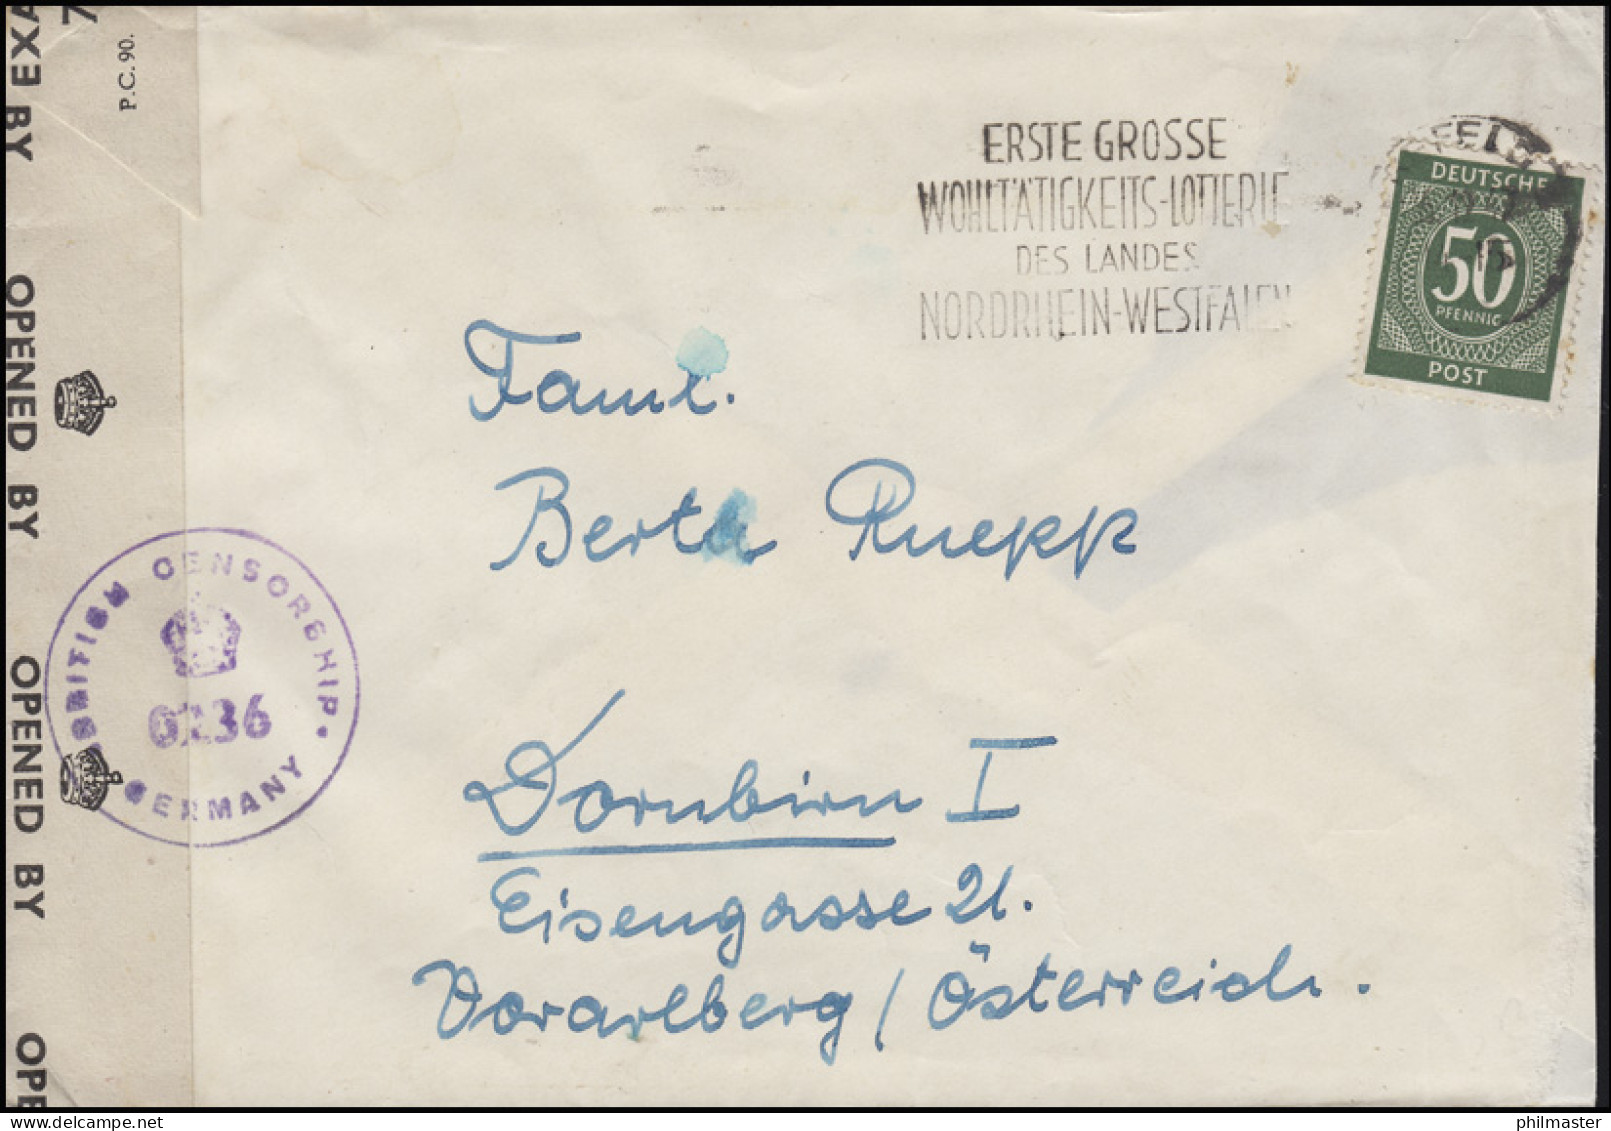 P.C. 90.
BY
OPENED BY
OPENED BY
ERSTE GROSSE
WOHLTÄTIGKEITS-LOTTERIE
DES LANDES
NORDRHEIN-WESTFALEN
DEUTSCHE
50
PFENNIG
POST
Faml.
Berta Ruepp
BRITISH CENSORSHIP
GERMANY
Dornbirn I
Eisengasse 21.
Vorarlberg / Österreich.
philmaster